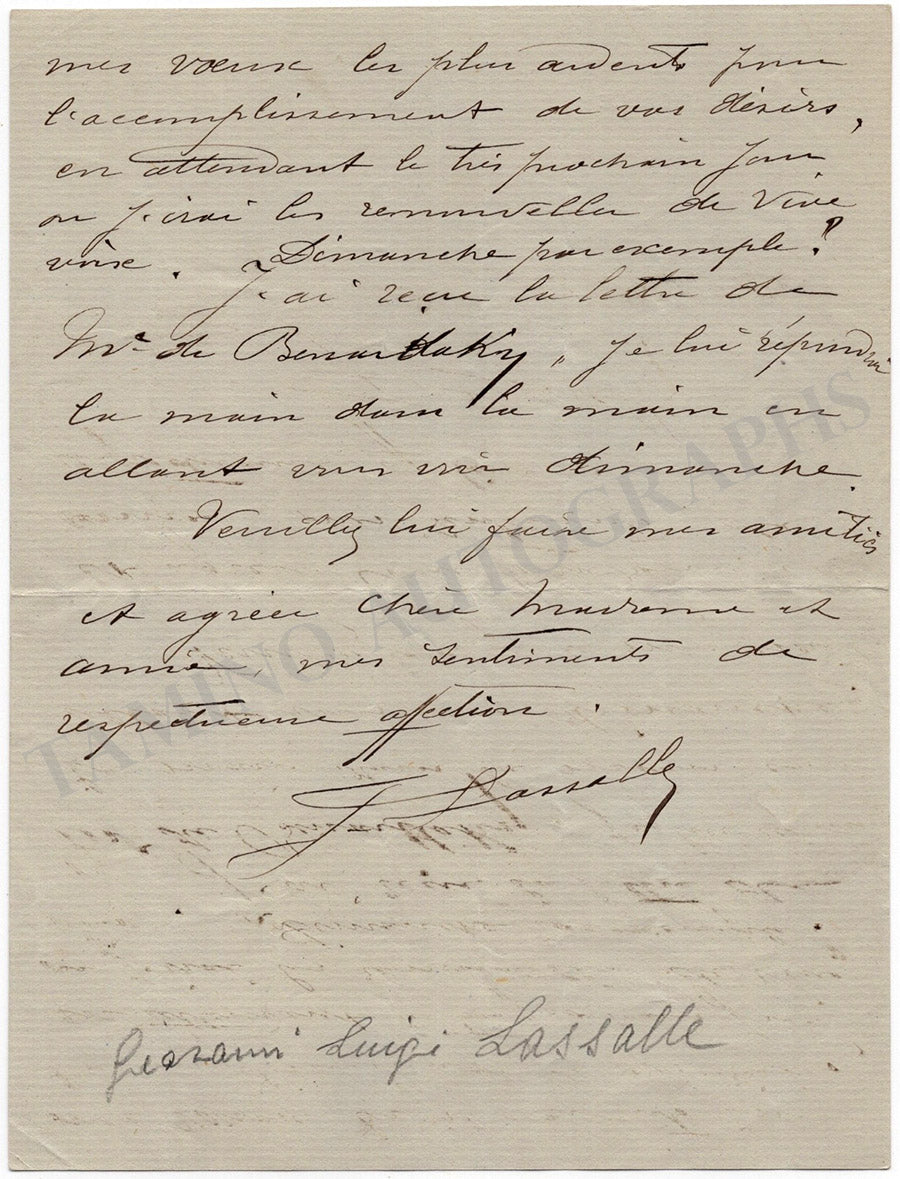 mes vœux les plus ardents pour
l'accomplissement de vos désirs,
en attendant le très prochain jour
ou j'irai les renouveller de vive
voix. Dimanche par exemple?
J'ai reçu la lettre de
Mr de Benardaky, je lui répondrai
la main dans la main en
allant vous voir dimanche.
Veuillez lui faire mes amitiés
et agréer chère Madame et
amie, mes sentiments de
respectueuse affection.
J Lassalle
Giovanni Luigi Lassalle
TAMINO AUTOGRAPHS